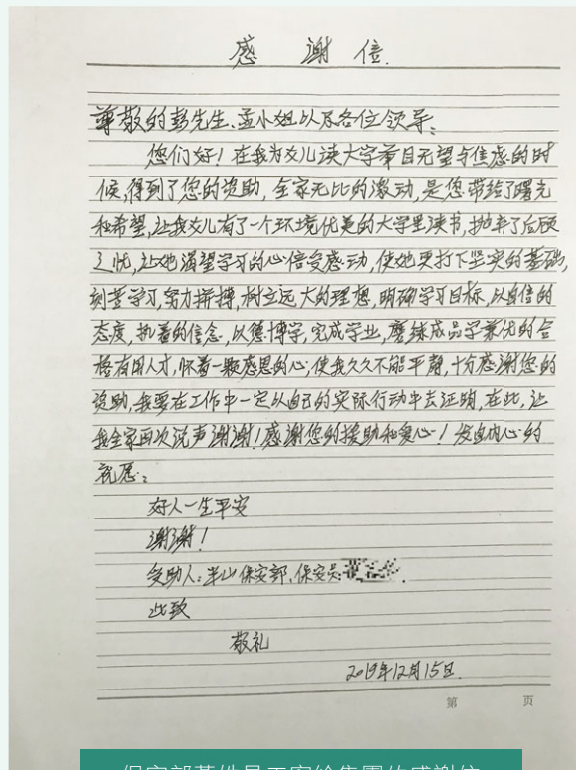 感谢信.
尊敬的彭先生、孟小姐以及各位领导:
您们好!在我为女儿读大学举目无望与焦虑的时
候,得到了您的资助,全家无比的激动,是您带给了曙光
和希望,让我女儿有了一个环境优美的大学里读书,抛弃了后顾
之忧,让她渴望学习的心倍受感动,使她更打下坚实的基础,
刻苦学习,努力拼搏,树立远大的理想,明确学习目标,以自信的
态度,执着的信念,以德博学,完成学业,磨练成品学兼优的合
格有用人才,怀着一颗感恩的心,使我久久不能平静,十分感谢您的
资助,我要在工作中一定以自己的实际行动中去证明,在此,让
我全家再次说声谢谢!感谢您的援助和爱心!发自内心的
祝愿:
好人一生平安
谢谢!
受助人:半山保安部,保安员:
此致
敬礼
2019年12月15日.
第 页